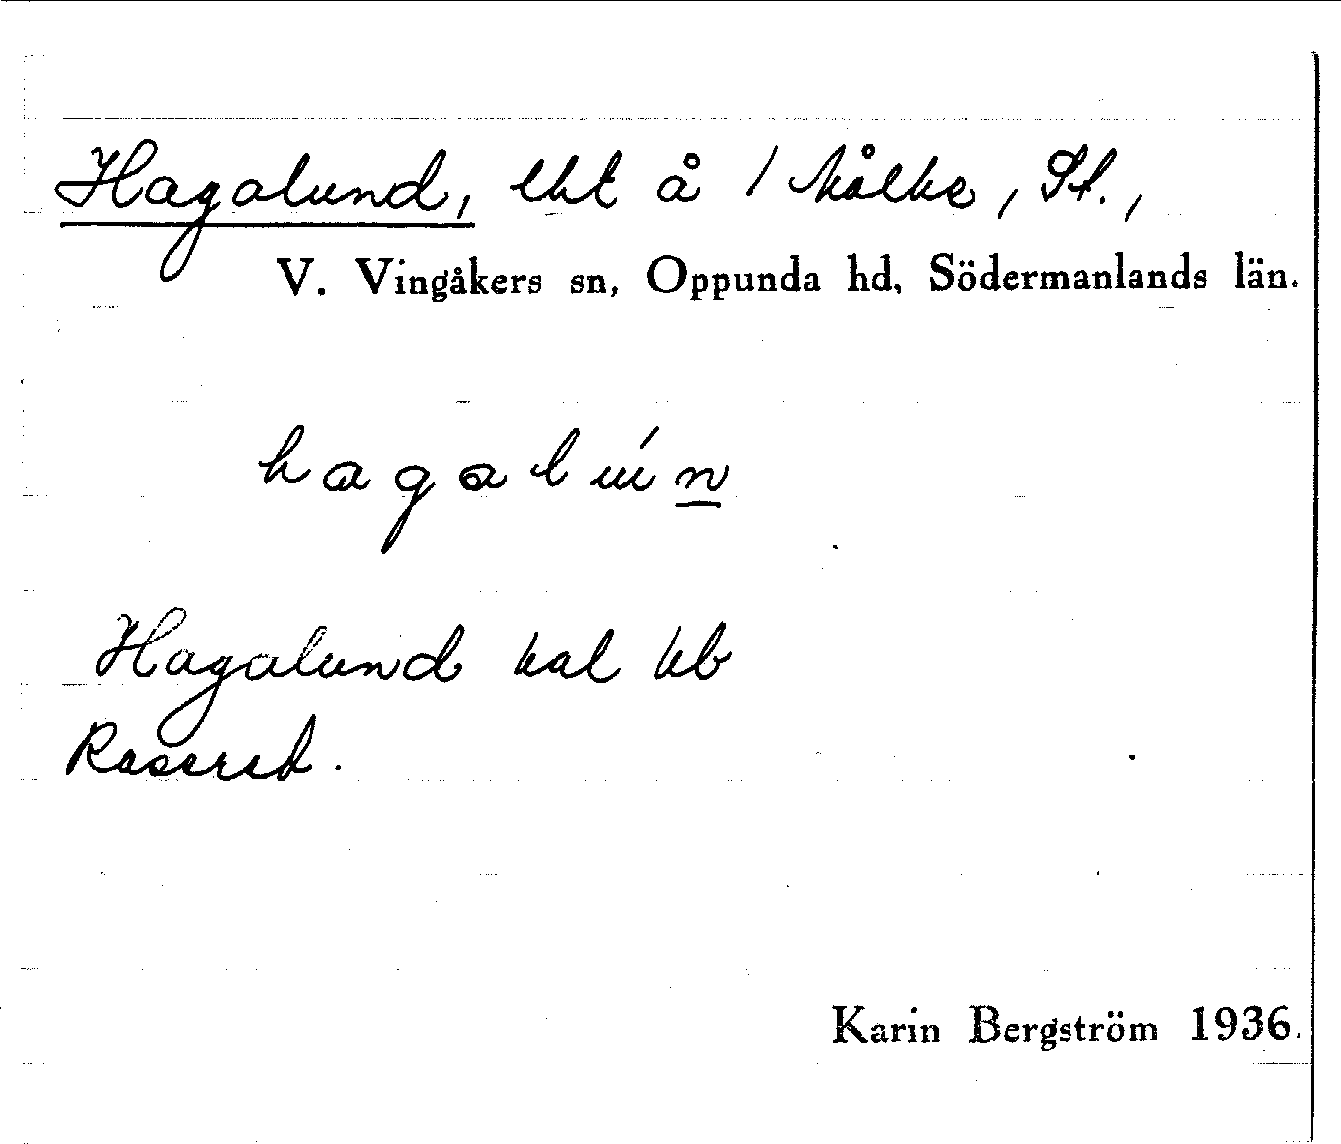 Hagalund, lht å 1 Skålke, St.,
V. Vingåkers sn, Oppunda hd, Södermanlands län.
hagalún
Hagalund kal kb
Raserad.
Karin Bergström 1936.